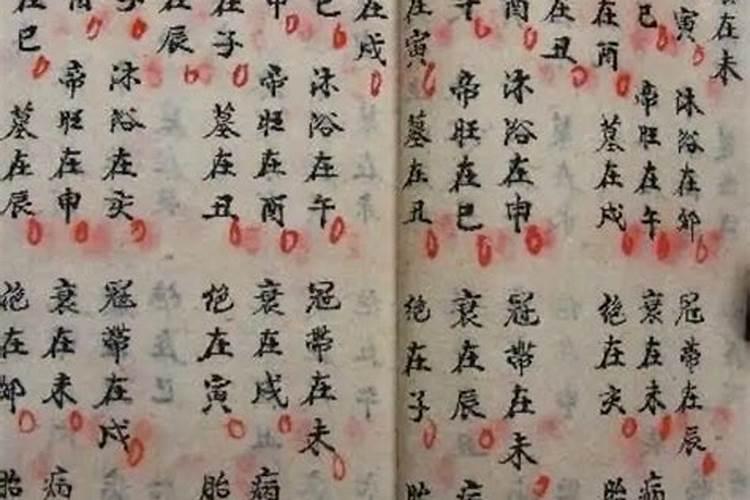 在未
寅
巳
在酉
在丑
酉
在寅
在戌
巳
在子
在辰
子
在巳
沐浴在卯
帝旺在午
墓在戌
沐浴在申
帝旺在巳
墓在丑
沐浴在午
帝旺在酉
墓在丑
沐浴在亥
帝旺在申
墓在辰
冠帶在辰
衰在未
绝在亥
冠帶在未
衰在辰
绝在子
冠帶在未
衰在戌
绝在寅
冠帶在戌
衰在未
绝在卯
病
胎
病
胎
病
胎
病
胎